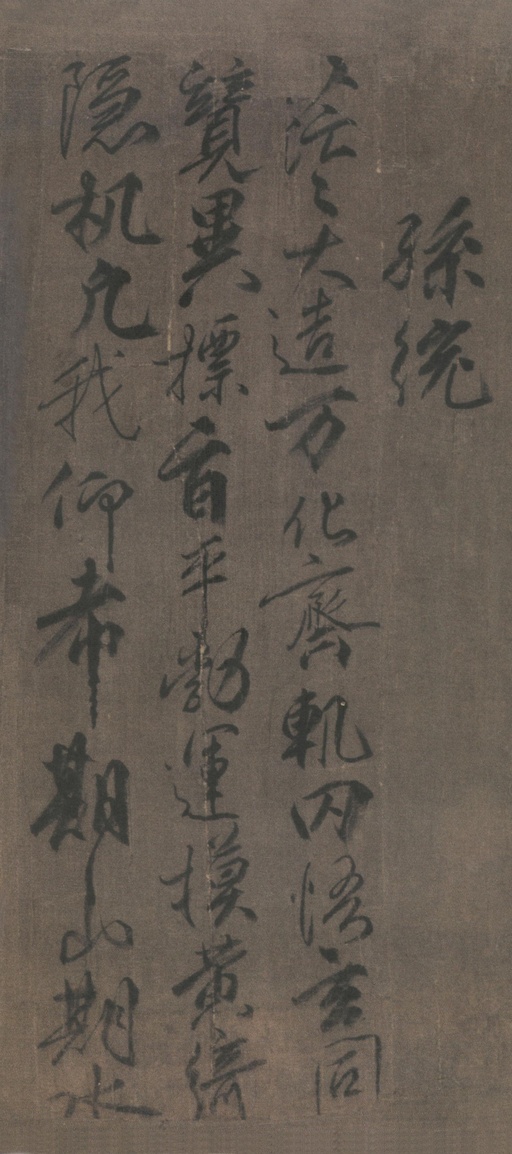 孫統
茫々大造万化齊軌罔悟玄同
競異摽旨平勃運摸黃綺
隱机凡我仰希期山期水